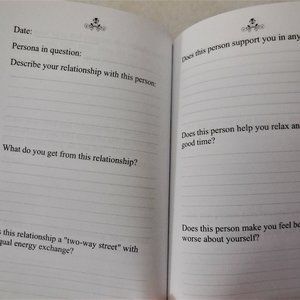 Date:
Persona in question:
Describe your relationship with this person:
What do you get from this relationship?
this relationship a "two-way street" with
energy exchange?
Does this person support you in any
Does this person help you relax
good time?
Does this person make you feel
worse about yourself?